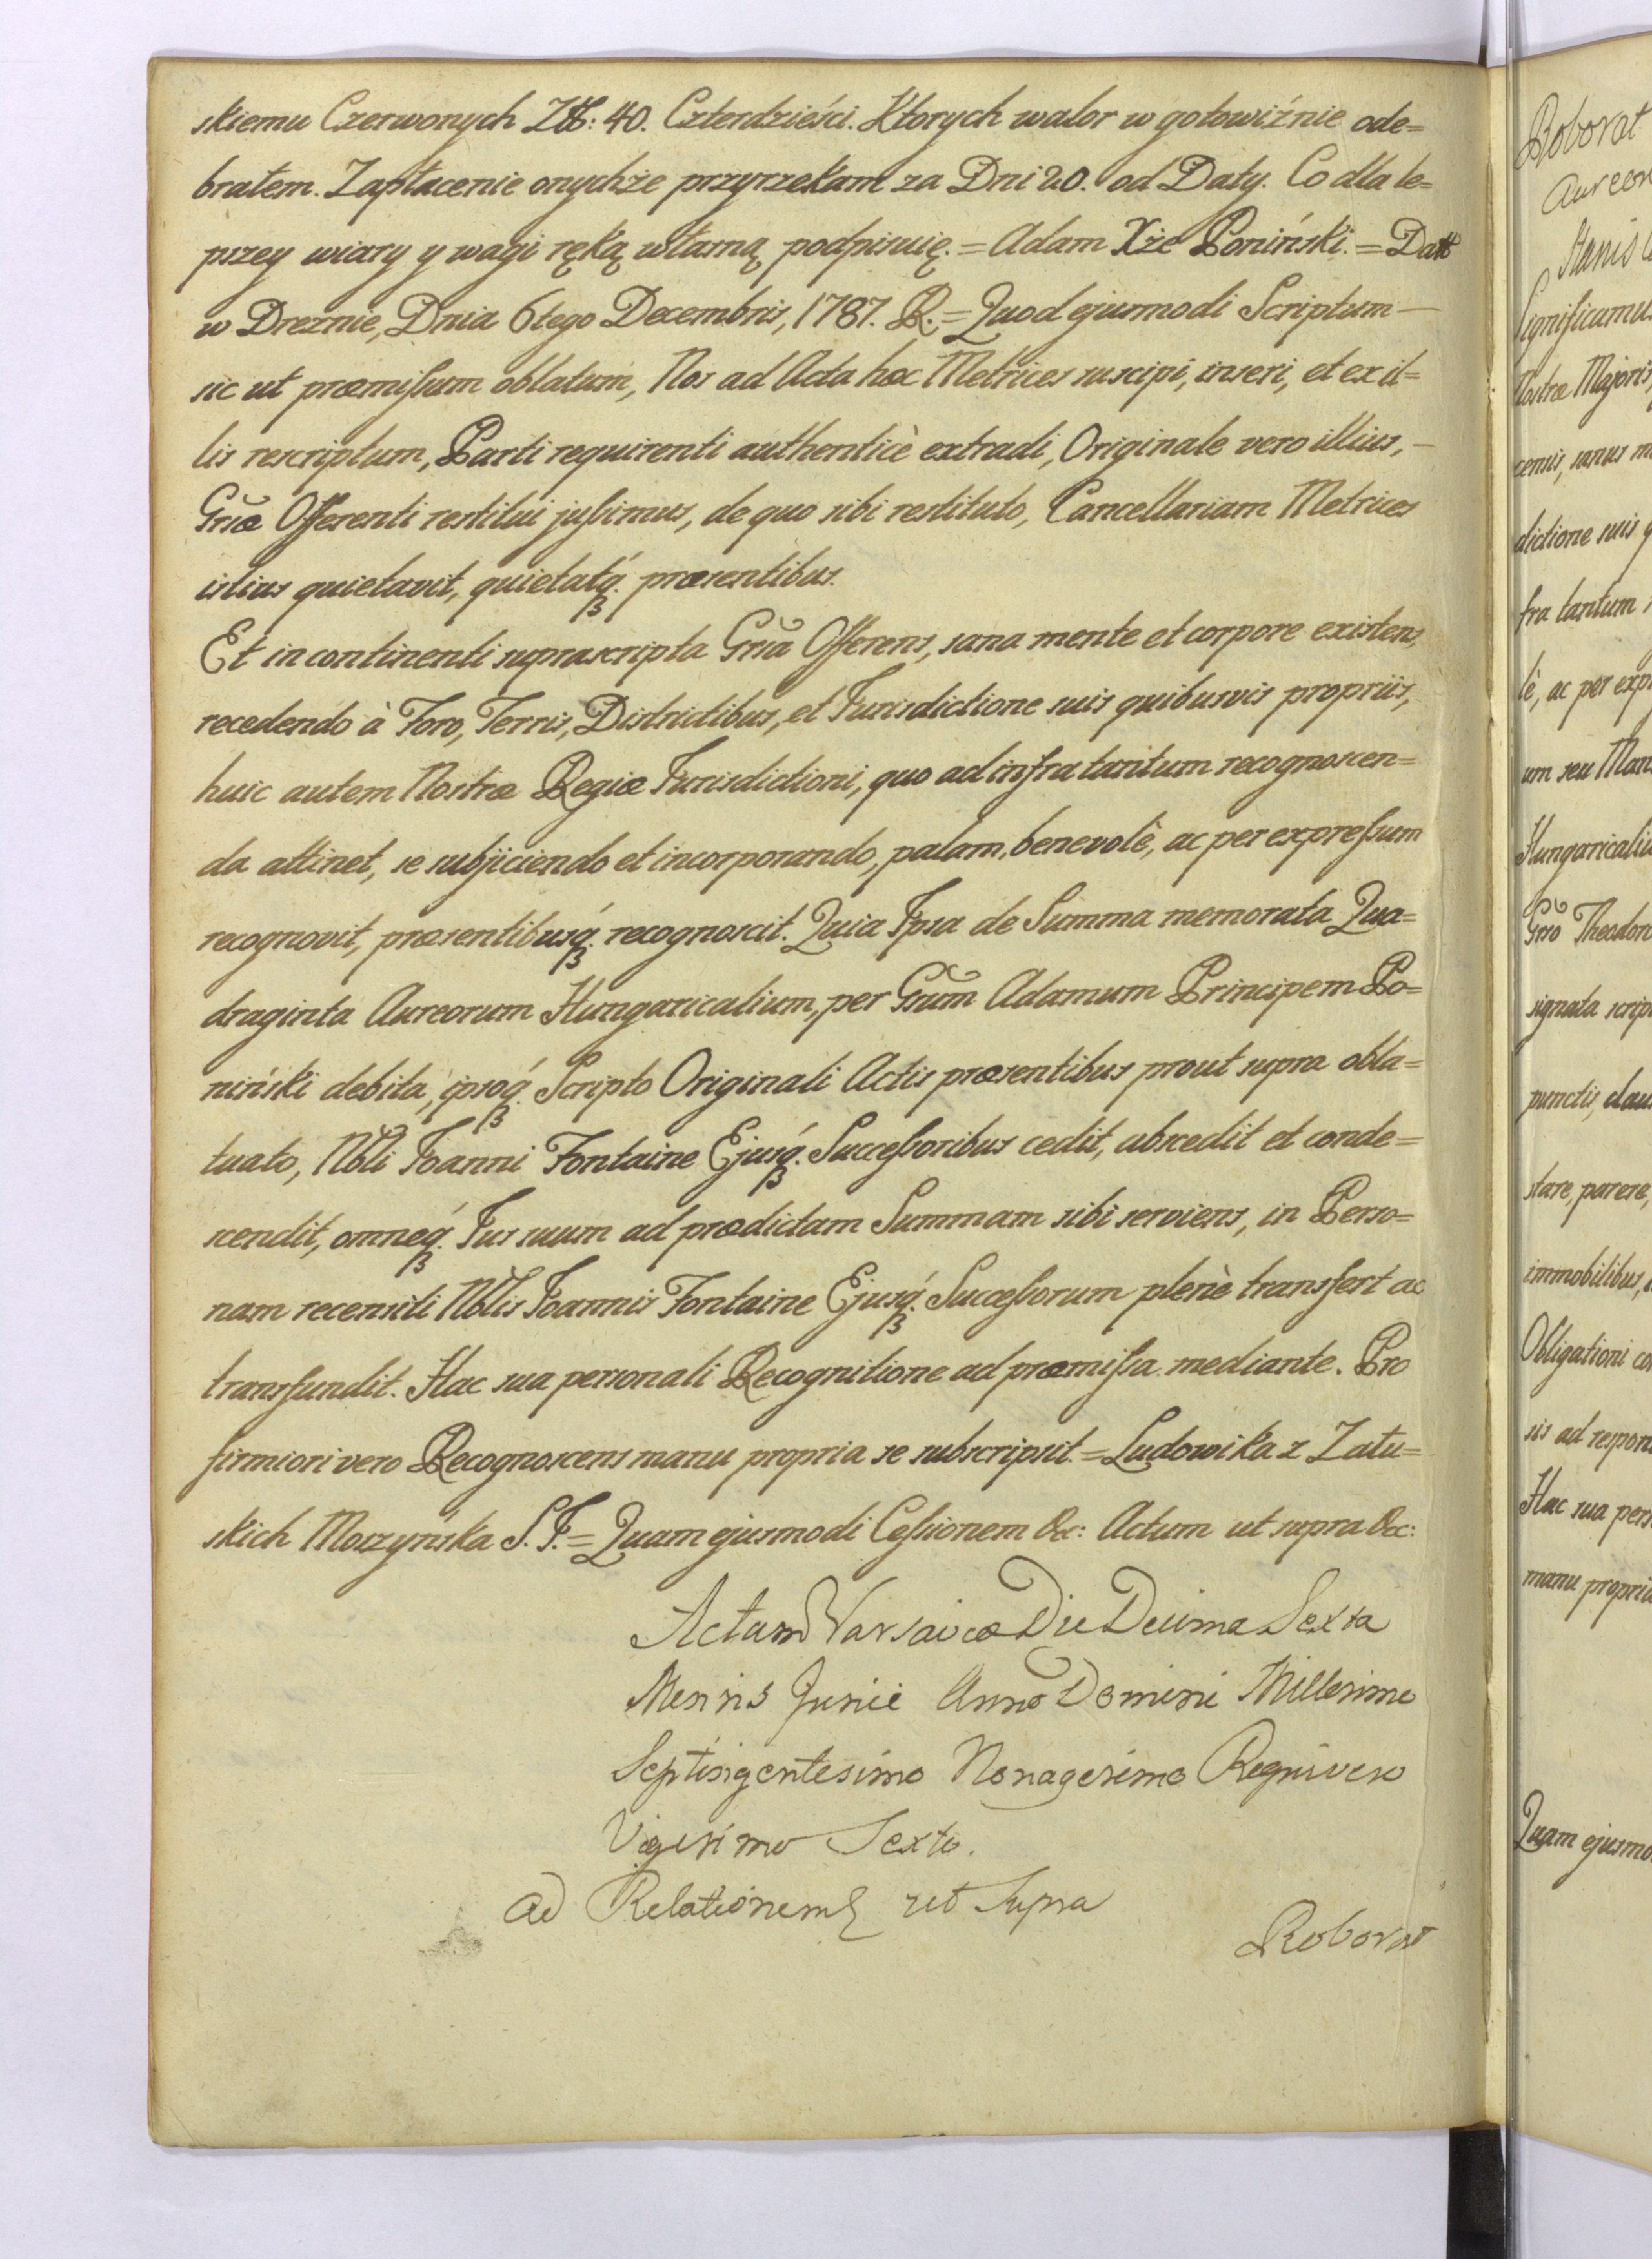 skiemu Czerwonych Złł: 40. Czterdzieści. Ktorych walor w gotowiźnie ode=
brałem. Zapłacenie onychże przyrzekam za Dni 20. od Daty. Co dla le=
pszey wiary y wagi ręką własną podpisuię. = Adam Xże Poniński. = Datt
w Dreznie, Dnia 6tego Decembris, 1787. R. = Quod ejusmodi Scriptum —
sic ut præmissum oblatum, Nos ad Acta hæc Metrices suscipi, inseri, et ex il=
lis rescriptum, Parti requirenti authenticè extradi, Originale vero illius, —
Gsæ Offerenti restitui jussimus, de quo sibi restituto, Cancellariam Metrices
istius quietavit, quietatq. præsentibus.
Et in continenti suprascripta Gsa Offerens, sana mente et corpore existens,
recedendo à Foro, Terris, Districtibus, et Jurisdictione suis quibusvis propriis,
huic autem Nostræ Regiæ Jurisdictioni, quo ad infra tantum recognoscen=
da attinet, se subjiciendo et incorporando, palam, benevolè, ac per expressum
recognovit, præsentibusq. recognoscit. Quia Ipsa de Summa memorata Qua=
draginta Aureorum Hungaricalium, per Gsum Adamum Principem Po=
niński debita, ipsoq. Scripto Originali Actis præsentibus prout supra obla=
tuato, Nbli Joanni Fontaine Ejusq. Successoribus cedit, abscedit et conde=
scendit, omneq. Jus suum ad prædictam Summam sibi serviens, in Perso=
nam recensiti Nblis Joannis Fontaine Ejusq. Successorum plenè transfert ac
transfundit. Hac sua personali Recognitione ad præmissa mediante. Pro
firmiori vero Recognoscens manu propria se subscripsit = Ludowika z Zału=
skich Moszyńska S. J. = Quam ejusmodi Cessionem &c: Actum ut supra &c:
Actum Varsaviæ Die Decima Sexta
Mensis Junii Anno Domini Millesimo
Septingentesimo Nonagesimo Regni vero
Vigesimo Sexto.
Ad Relationem ut Supra
Roborat
Roborat
Aureor
Stanis
Significamus
Nostræ Majoris
cens, sanus m
dictione suis q
fra tantum
lè, ac per exp
um seu Man
Hungaricaliu
Gso Theodor
signata scrip
punctis, clau
stare, parere,
immobilibus,
Obligationi co
sis ad respon
Hac sua pers
manu propria
Quam ejusmo